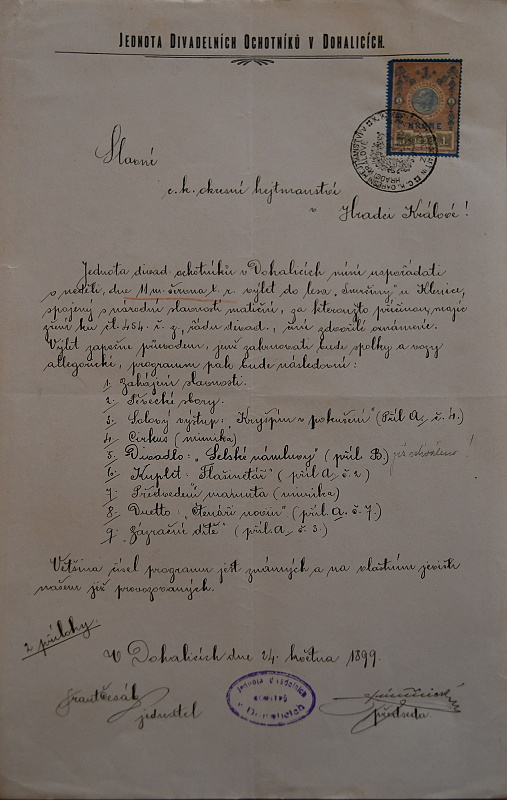 JEDNOTA DIVADELNÍCH OCHOTNÍKŮ V DOHALICÍCH.
1
KRONE
Slavné
c. k. okresní hejtmanství
v
Hradci Králové!
Jednota divad. ochotníků v Dohalicích míní uspořádati
v neděli, dne 11. m. června t. r. výlet do lesa „Smrčiny" u Klenice,
spojený s národní slavností matiční, za kteroužto příčinou, majíc
zření ku čl. 454. ř. z., řádu divad., činí zdvořilé oznámení.
Výlet započne průvodem, jenž zahrnovati bude spolky a vozy
allegorické, programm pak bude následovní:
1. Zahájení slavnosti.
2. Pěvecké sbory.
3. Solový výstup: „Kryšpín v pokušení" (Příl. A, č. 4.)
4. Cirkus (mimika)
5. Divadlo: „Selské námluvy" (příl. B) již schváleno!
6. Kuplet: „Flašinetář" (příl. A, č. 2)
7. Předvedení mamuta (mimika)
8. Duetto: „Čtenáři novin" (příl. A. č. 7.)
9. „Zázračné dítě" (příl. A, č. 3.)
Většina čísel programu jest známých a na vlastním jevišti
našem již provozovaných.
2 přílohy.
V Dohalicích dne 24. května 1899.
jednatel
Jednota divadelních
ochotníků
v Dohalicích
předseda